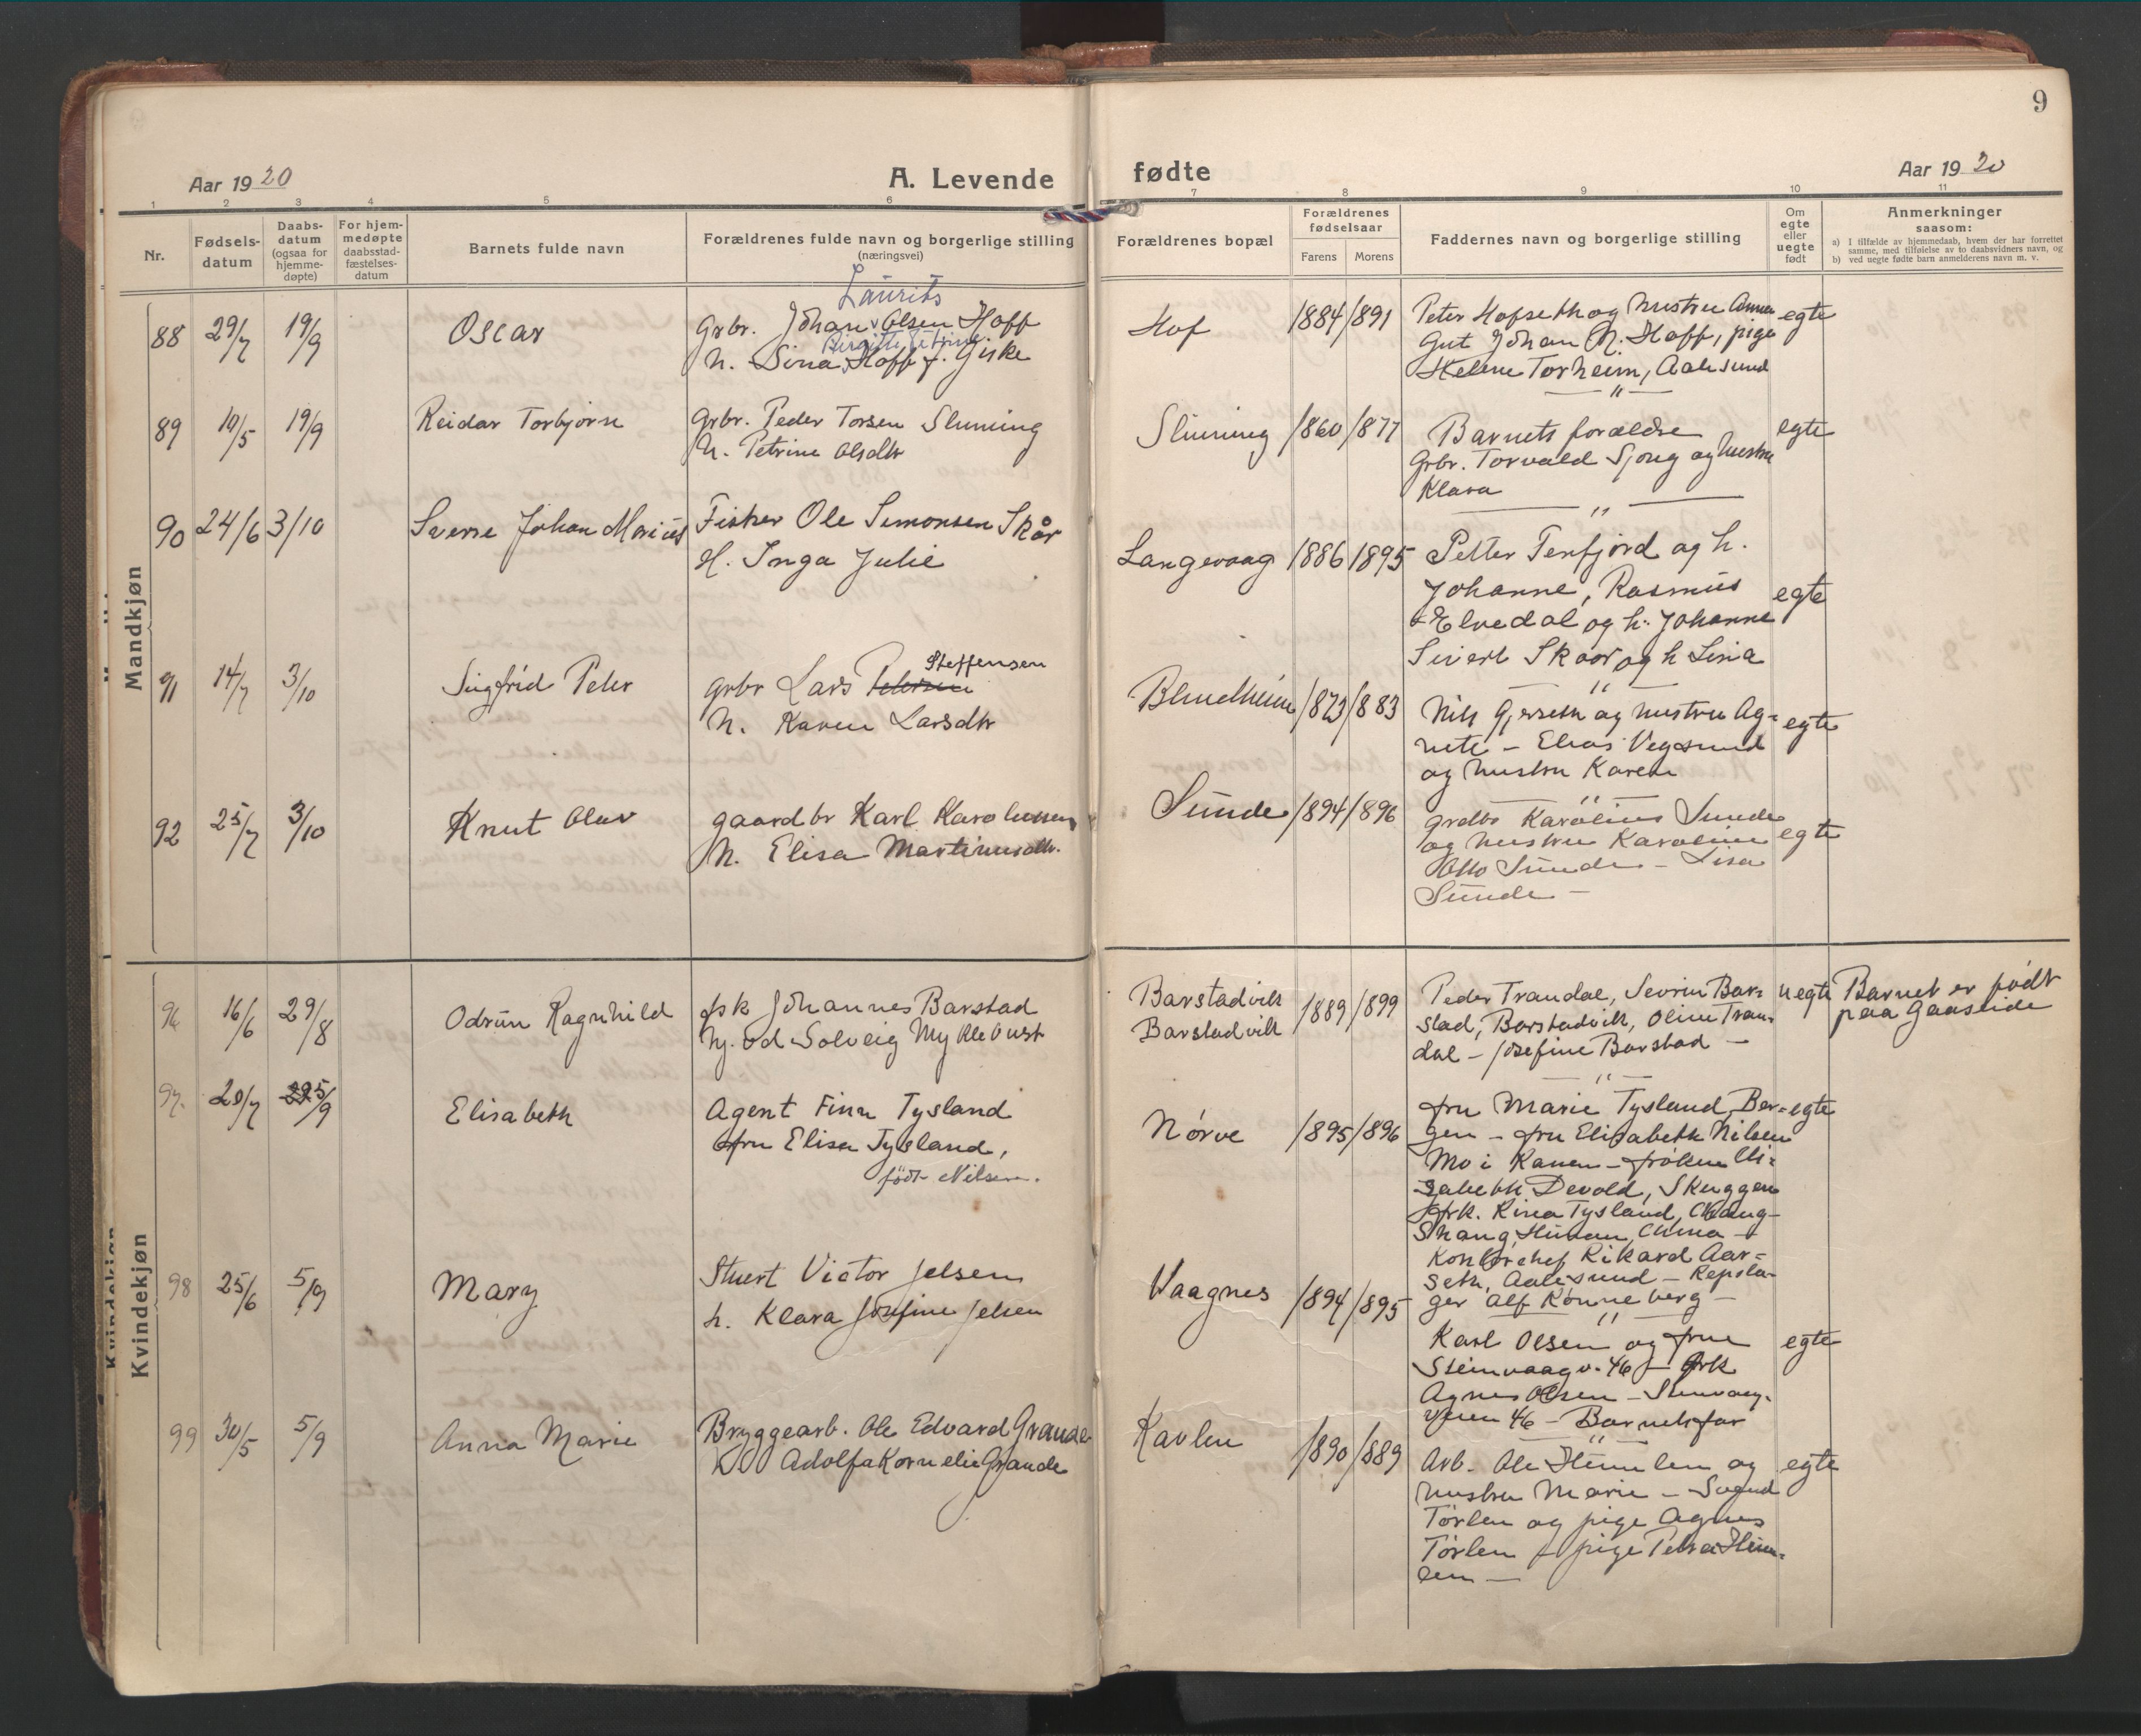 9
Aar 1920
A. Levende
fødte
Aar 1920
1 2 3 4 5 6 7 8 9 10 11
Nr.
Fødsels-
datum
Daabs-
datum
(ogsaa for
hjemme-
døpte)
For hjem-
medøpte
daabsstad-
fæstelses-
datum
Barnets fulde navn
Forældrenes fulde navn og borgerlige stilling
(næringsvei)
Forældrenes bopæl
Forældrenes
fødselsaar
Farens Morens
Faddernes navn og borgerlige stilling
Om
egte
eller
uegte
født
Anmerkninger
saasom:
a) I tilfælde av hjemmedaab, hvem der har forrettet
samme, med tilføielse av to daabsvidners navn, og
b) ved uegte fødte barn anmelderens navn m. v.
Mandkjøn
88 29/7 19/9 Oscar
Laurits
Grbr. Johan Olsen Hoff
Birgitte Petrine
h. Sina Hoff f. Giske
Hof 1884 1891
Peter Hofseth og hustru Anna
Gut Johan N. Hoff, pige
Helene Torheim, Aalesund
egte
89 10/5 19/9 Reidar Torbjørn
Grbr. Peder Torsen Slinning
h. Petrine Olsdtr
Slinning 1860 1877
Barnets forældre
Grbr. Torvald Sjong og hustru
Klara
egte
90 24/6 3/10 Sverre Johan Marius
Fisker Ole Simonsen Skår
H. Inga Julie
Langevaag 1886 1895
Petter Tenfjord og h.
Johanne, Rasmus
Elvedal og h. Johanne
Sivert Skaar og h Lina
egte
91 14/7 3/10 Singfrid Peter
Steffensen
grbr Lars Petersen
h. Karen Larsdtr
Blindheim 1873 1883
Nils Gjerseth og hustru Ag-
nete - Elias Vegsund
og hustru Karen
egte
92 25/7 3/10 Knut Olav
gaardbr Karl Karolussen
h. Elisa Martinusdtr.
Sunde 1894 1896
grdbr Karolius Sunde
og hustru Karoline
Otto Sunde - Lisa
Sunde -
egte
Kvindekjøn
96 16/6 29/8 Odrun Ragnhild
fsk Johannes Barstad
Solveig Myklebust
Barstadvik
Barstadvik
1889 1899
Peder Trandal, Sevrin Bar-
stad, Barstadvik, Oline Tran-
dal - Josefine Barstad -
uegte
Barnet er født
paa Gaaseide
97. 20/7 5/9 Elisabeth
Agent Finn Tysland
fru Elisa Tysland,
født Nilsen.
Nørve 1895 1896
fru Marie Tysland, Ber-
gen - fru Elisabeth Nilsen
Mo i Ranen - frøken Eli-
sabeth Devold, Skuggen
frk. Rina Tysland, Chang-
Shang, Hunan, China -
Kontorchef Rikard Aar-
seth, Aalesund - Repsla-
ger Alf Rønneberg -
egte
98 25/6 5/9 Mary
Stuert Victor Jelsen
h. Klara Josefine Jelsen
Vaagnes 1894 1895
Karl Olsen og frue
Steinvaagv. 46 - frk
Agnes Olsen - Stenvaag-
veien 46 - Barnets far
egte
99 30/5 5/9 Anna Marie
Bryggearb. Ole Edvard Grande
Adolfa Kornelie Grande
Kavlen 1890 1889
Arb. Ole Himlen og
hustru Marie - Svend
Tørlen og pige Agnes
Tørlen - pige Petra Him-
len -
egte
Kvindekjøn